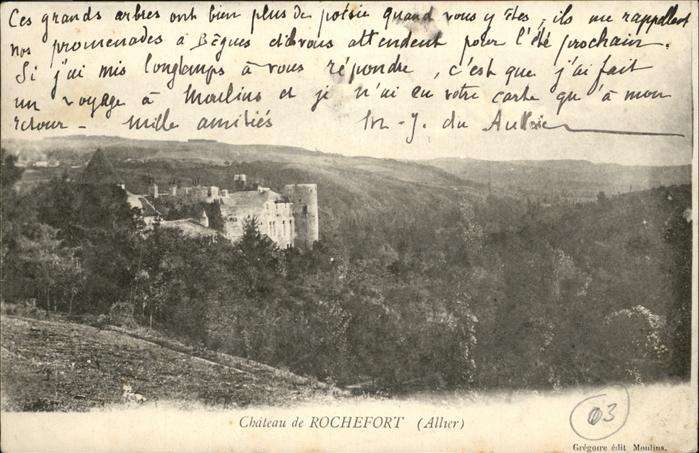 Ces grands arbres ont bien plus de poésie quand vous y êtes, ils me rappellent
nos promenades à Bègues et vous attendent pour l'été prochain.
Si j'ai mis longtemps à vous répondre, c'est que j'ai fait
un voyage à Moulins et je n'ai eu votre carte qu'à mon
retour - mille amitiés M-J. du
Château de ROCHEFORT (Allier)
03
Grégoire édit Moulins.